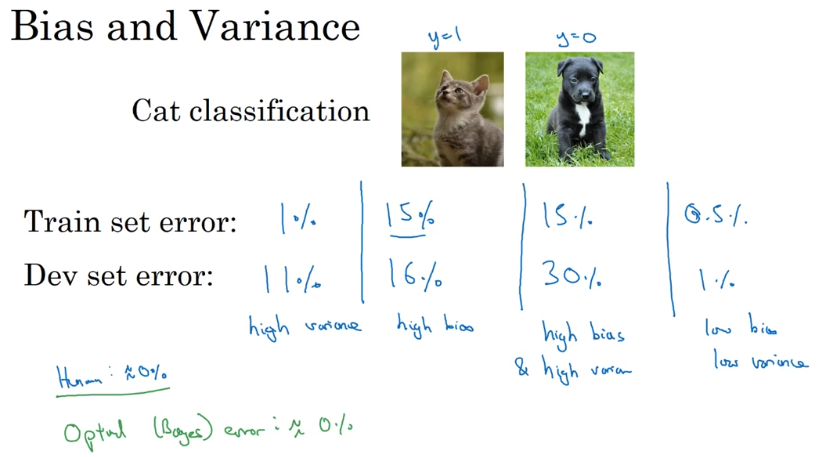 Bias and Variance
y=1 y=0
Cat classification
Train set error: 1% 15% 15% 0.5%
Dev set error: 11% 16% 30% 1%
high variance high bias high bias low bias
& high varian low variance
Human: ≈0%
Optml (Bayes) error: ≈ 0%